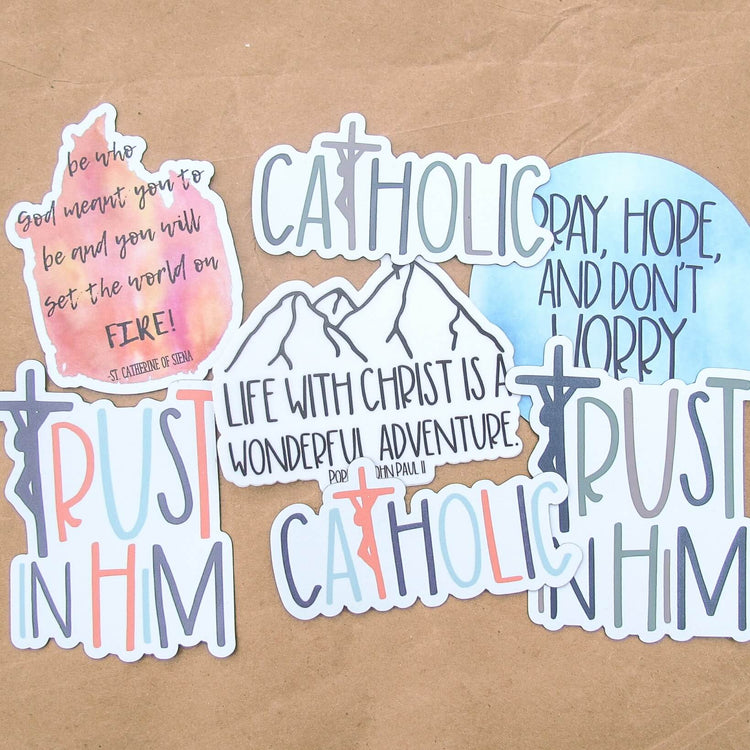 be who
God meant you to
be and you will
set the world on
FIRE!
ST. CATHERINE OF SIENA
CATHOLIC
PRAY, HOPE,
AND DON'T
WORRY
LIFE WITH CHRIST IS A
WONDERFUL ADVENTURE.
JOHN PAUL II
TRUST
IN HiM
CATHOLIC
TRUST
IN HiM